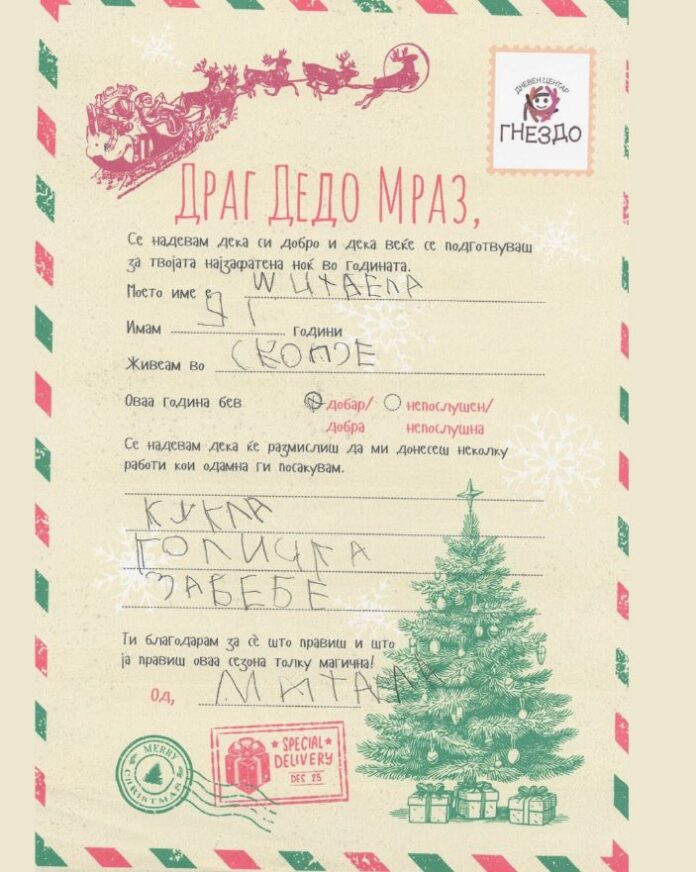 ДНЕВЕН ЦЕНТАР
ГНЕЗДО
Драг Дедо Мраз,
Се надевам дека си добро и дека веќе се подготвуваш
за твојата најзафатена ноќ во годината.
Моето име е
Имам години
Живеам во СКОПЈЕ
Оваа година бев добар/ добра непослушен/ непослушна
Се надевам дека ќе размислиш да ми донесеш неколку
работи кои одамна ги посакувам.
КУКЛА
КОЛИЧКА
ЗА БЕБЕ
Ти благодарам за сѐ што правиш и што
ја правиш оваа сезона толку магична!
Од,
MERRY CHRISTMAS
SPECIAL
DELIVERY
DES 25